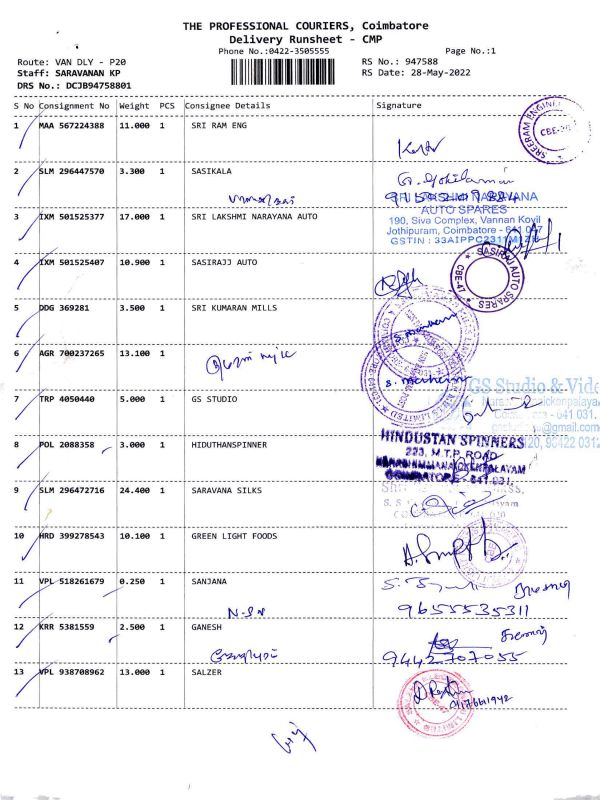 THE PROFESSIONAL COURIERS, Coimbatore
Delivery Runsheet - CMP
Phone No.:0422-3505555
Page No.:1
Route: VAN DLY - P20
RS No.: 947588
Staff: SARAVANAN KP
RS Date: 28-May-2022
DRS No.: DCJB94758801
S No Consignment No Weight PCS Consignee Details Signature
1 MAA 567224388 11.000 1 SRI RAM ENG
SREERAM ENGINE
CBE-20
2 SLM 296447570 3.300 1 SASIKALA
3 IXM 501525377 17.000 1 SRI LAKSHMI NARAYANA AUTO
AUTO SPARES
190, Siva Complex, Vannan Kovil
Jothipuram, Coimbatore - 641 047
4 IXM 501525407 10.900 1 SASIRAJJ AUTO
SASIRAJ AUTO SPARES
CBE-47
5 DDG 369281 3.500 1 SRI KUMARAN MILLS
6 AGR 700237265 13.100 1
7 TRP 4050440 5.000 1 GS STUDIO
GS Studio & Vide
8 POL 2088358 3.000 1 HIDUTHANSPINNER
HINDUSTAN SPINNERS
223, M.T.P. ROAD
COIMBATORE - 641 031.
9 SLM 296472716 24.400 1 SARAVANA SILKS
10 HRD 399278543 10.100 1 GREEN LIGHT FOODS
11 VPL 518261679 0.250 1 SANJANA
9655535311
12 KRR 5381559 2.500 1 GANESH
9442707055
13 VPL 938708962 13.000 1 SALZER